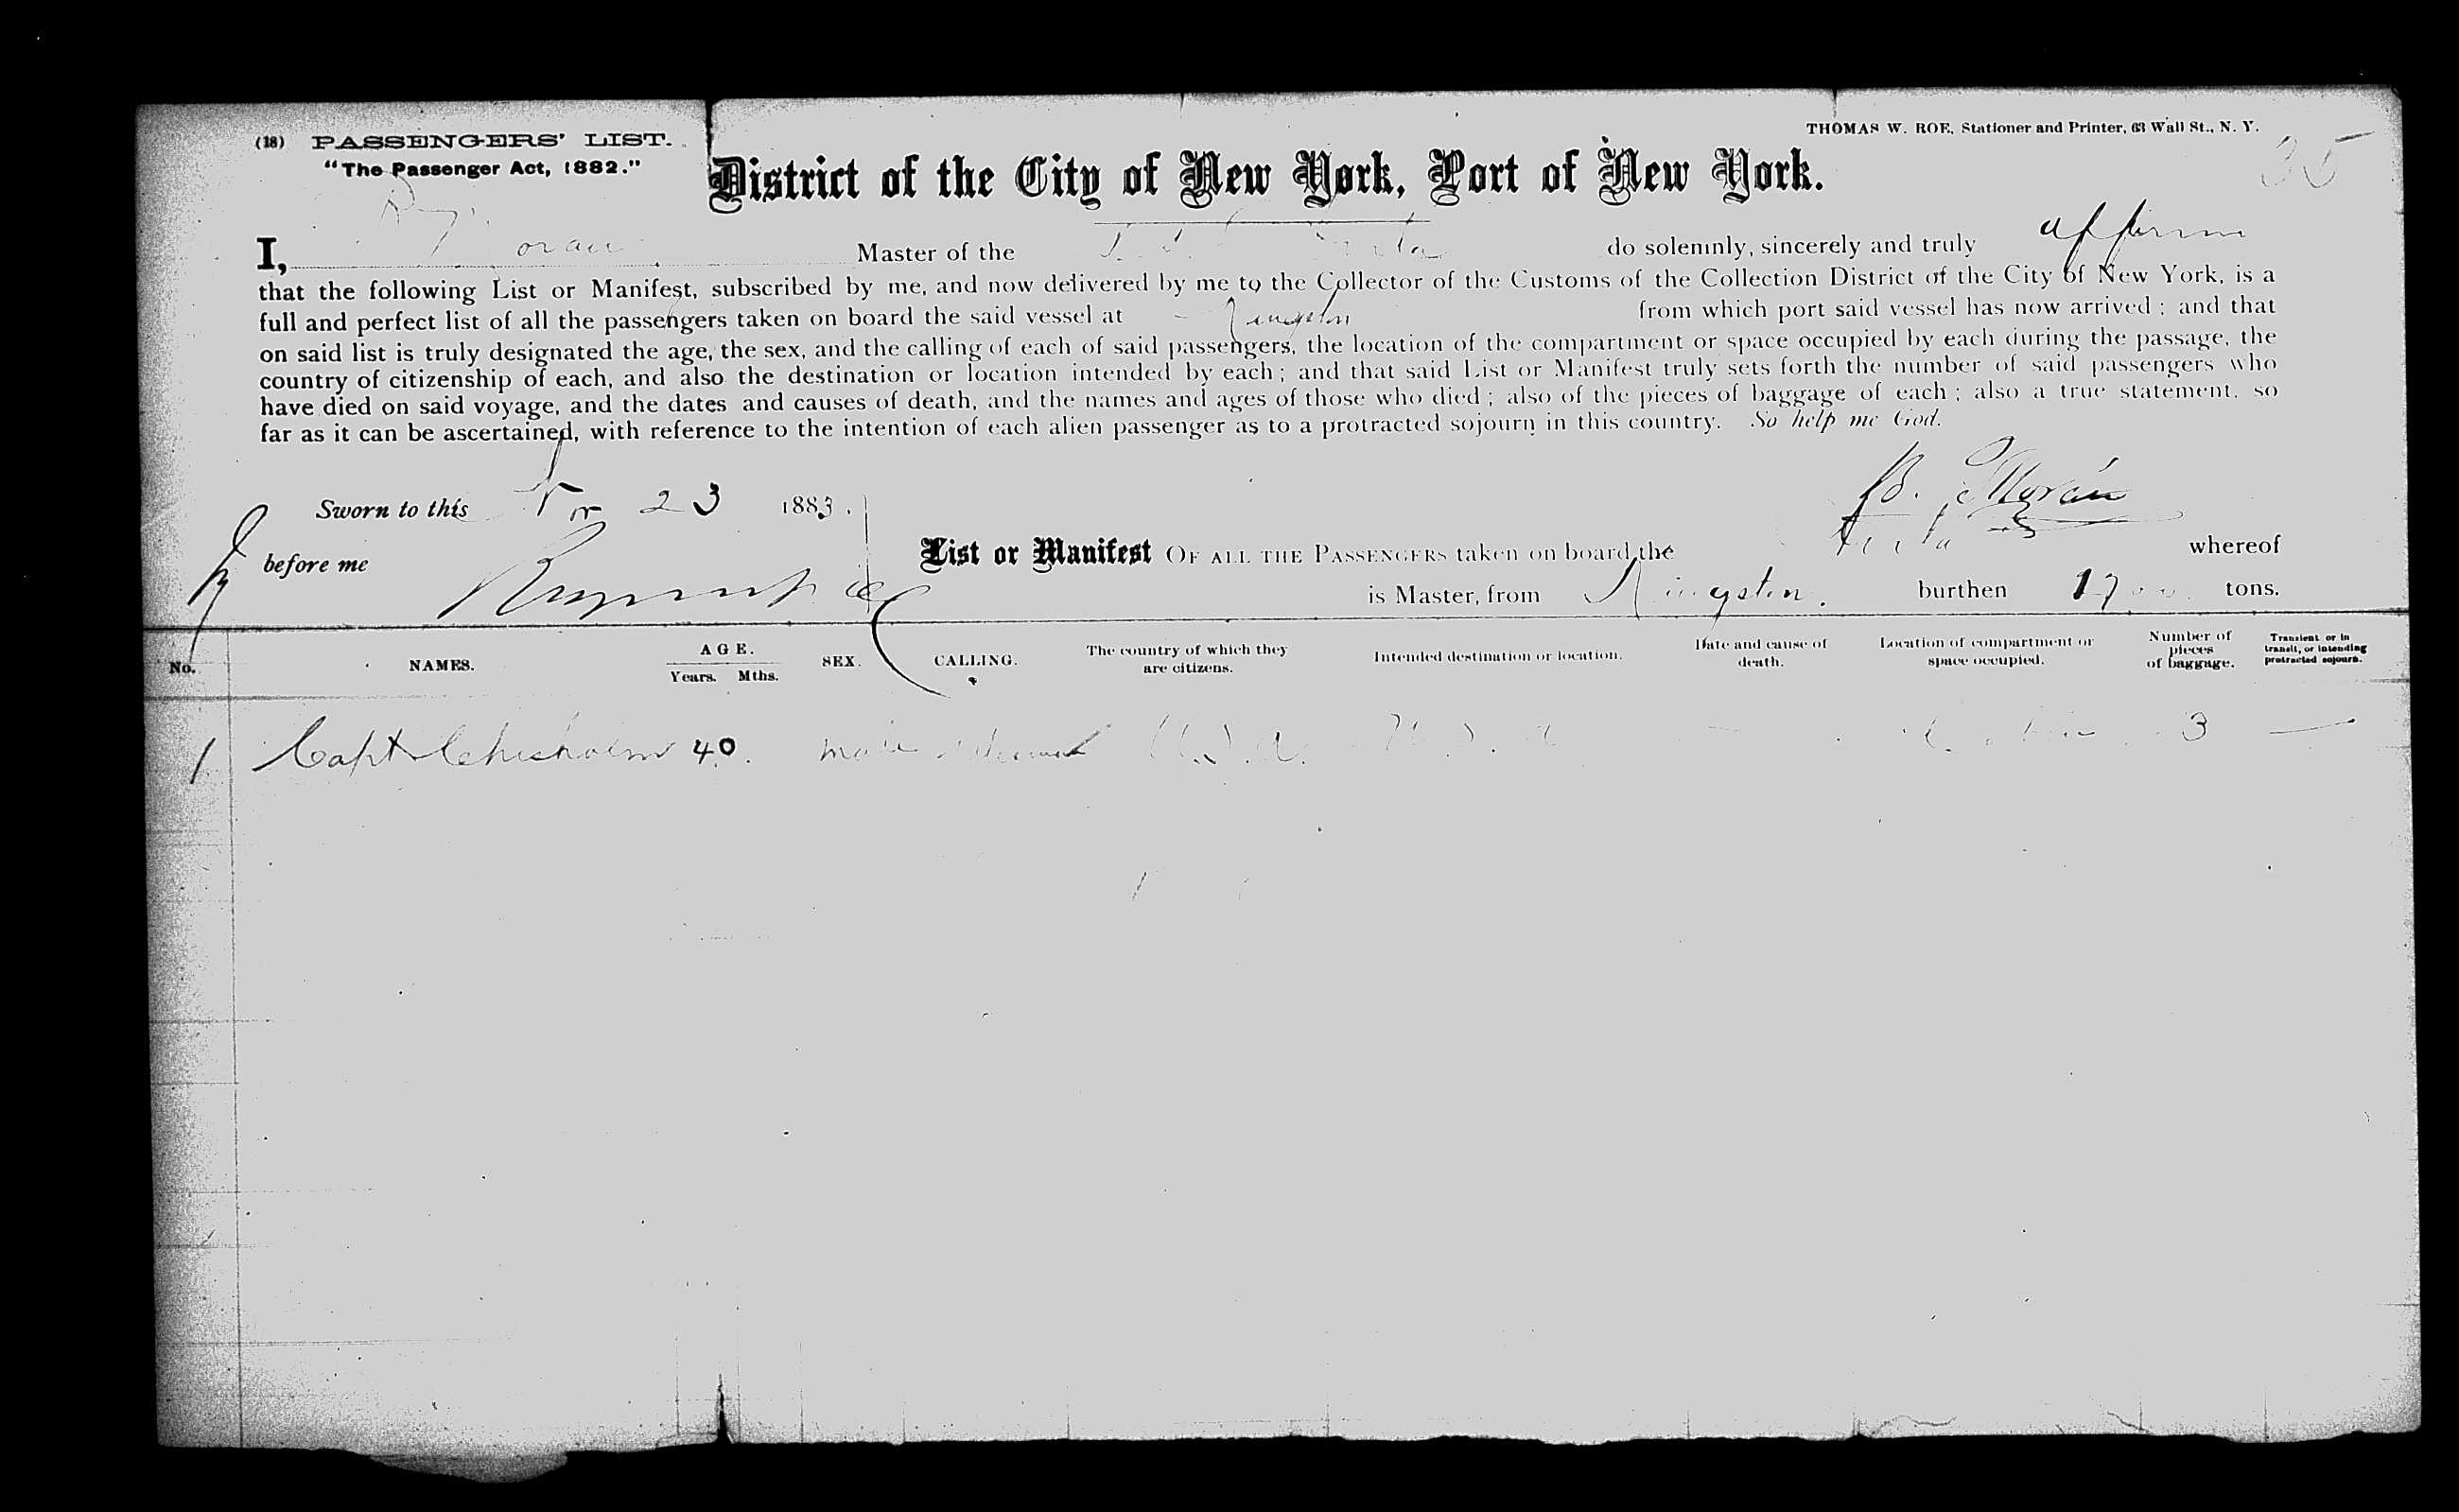 (18) PASSENGERS' LIST.
THOMAS W. ROE, Stationer and Printer, 63 Wall St., N. Y.
"The Passenger Act, 1882."
District of the City of New York, Port of New York.
35
I, Moran Master of the do solemnly, sincerely and truly affirm
that the following List or Manifest, subscribed by me, and now delivered by me to the Collector of the Customs of the Collection District of the City of New York, is a
full and perfect list of all the passengers taken on board the said vessel at Kingston from which port said vessel has now arrived; and that
on said list is truly designated the age, the sex, and the calling of each of said passengers, the location of the compartment or space occupied by each during the passage, the
country of citizenship of each, and also the destination or location intended by each; and that said List or Manifest truly sets forth the number of said passengers who
have died on said voyage, and the dates and causes of death, and the names and ages of those who died; also of the pieces of baggage of each; also a true statement, so
far as it can be ascertained, with reference to the intention of each alien passenger as to a protracted sojourn in this country. So help me God.
B. Moran
Sworn to this Nov 23 1883.
before me
List or Manifest OF ALL THE PASSENGERS taken on board the whereof
is Master, from Kingston. burthen tons.
No. NAMES. AGE. Years. Mths. SEX. CALLING. The country of which they are citizens. Intended destination or location. Date and cause of death. Location of compartment or space occupied. Number of pieces of baggage. Transient or in transit, or intending protracted sojourn.
1 Capt Chisholm 40. male U.S.A. U.S.A 3 —